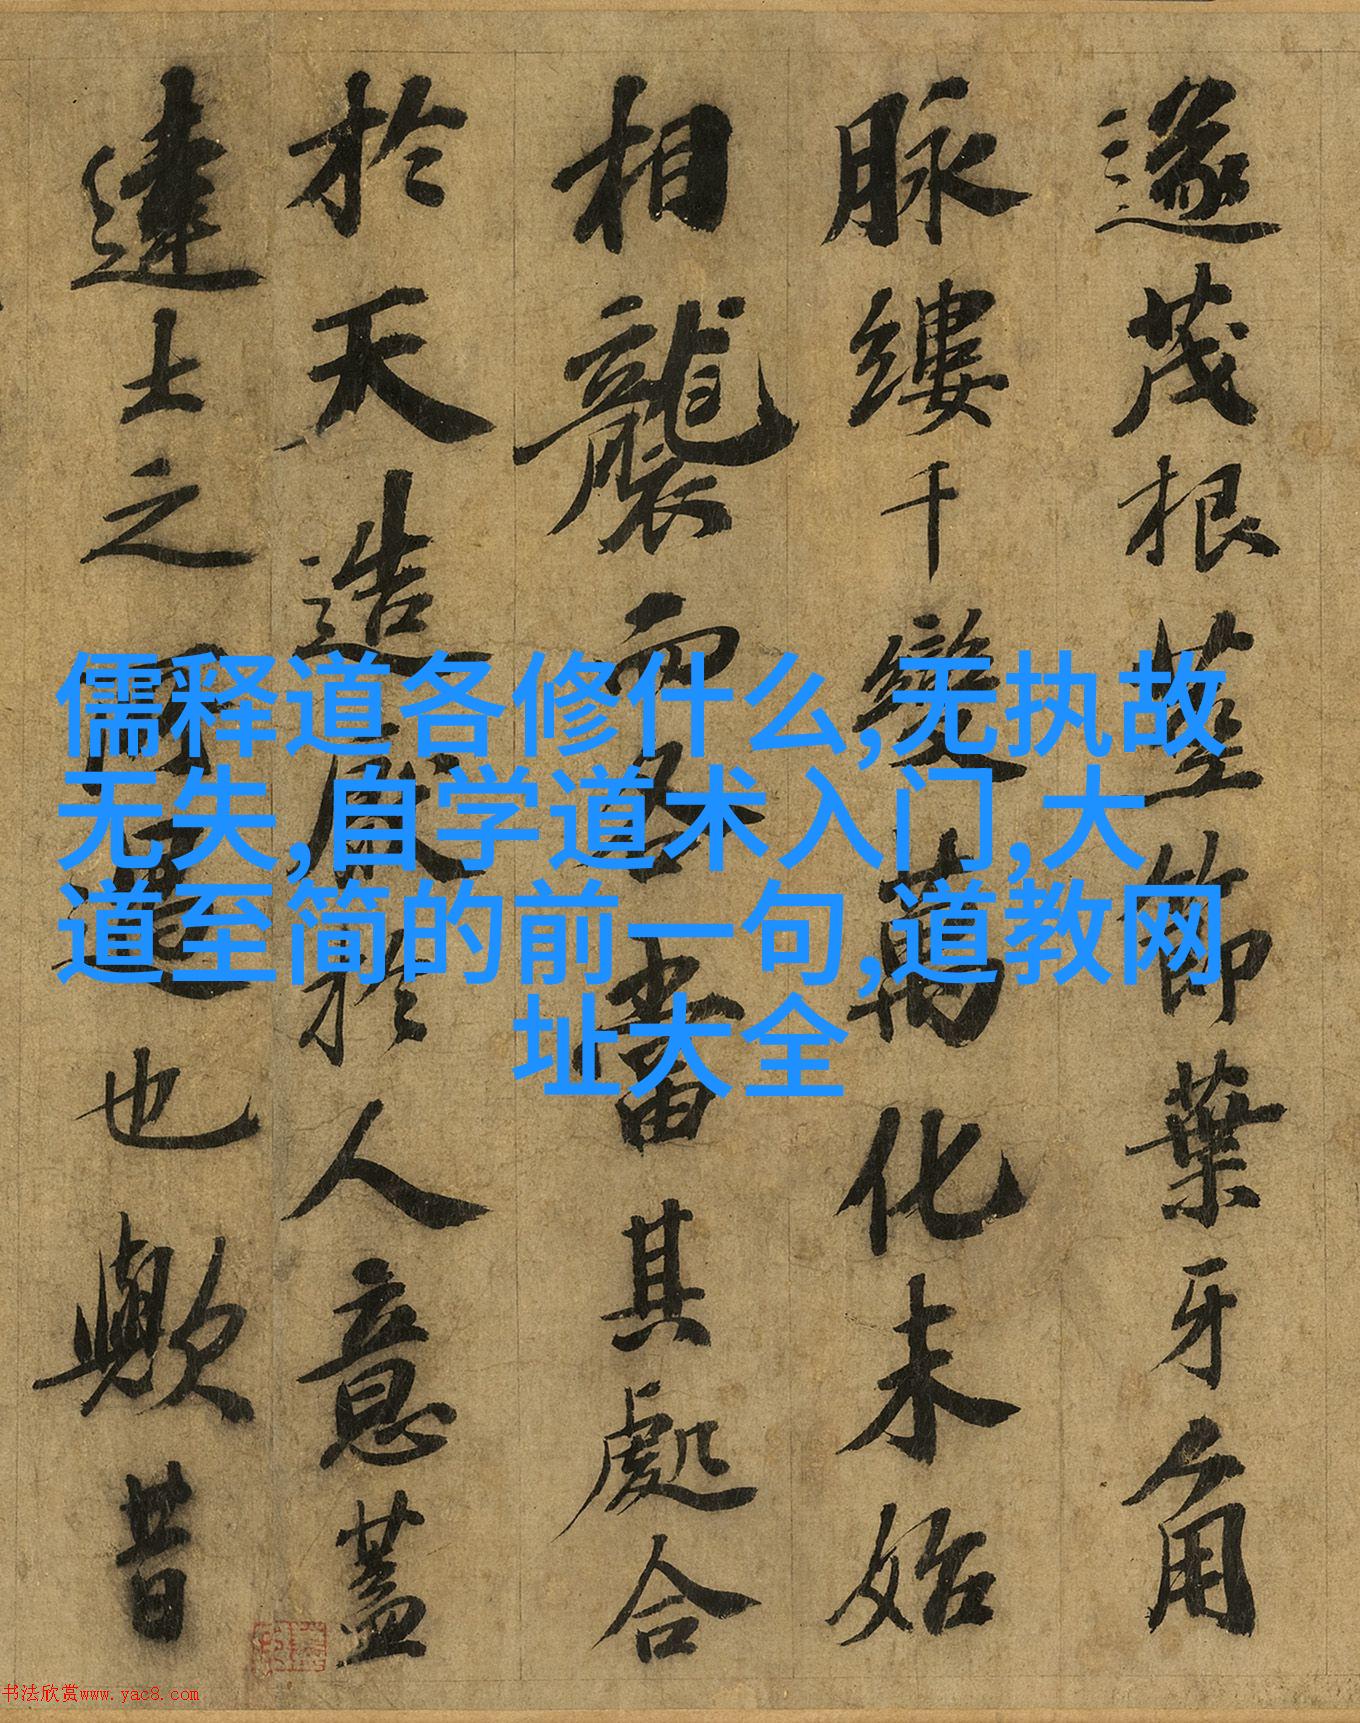 遂茂根莖節葉牙角
脉縷千變萬化未始
相襲而各當其處合
於天造厭於人意蓋
達士之所也歟昔
儒释道各修什么,无执故
无失,自学道术入门,大
道至简的前一句,道教网
址大全
书法欣赏www.yac8.com